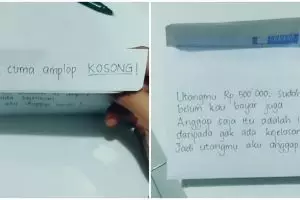 cuma amplop KOSONG!
Utangmu Rp 500.000, sudah
belum kau bayar juga
Anggap saja itu adalah
daripada gak ada kejelasan
Jadi utangmu aku anggap